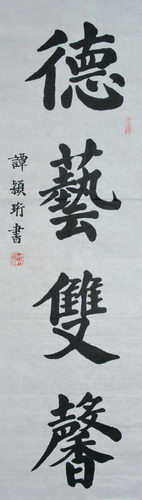 德藝雙馨
譚穎珩書